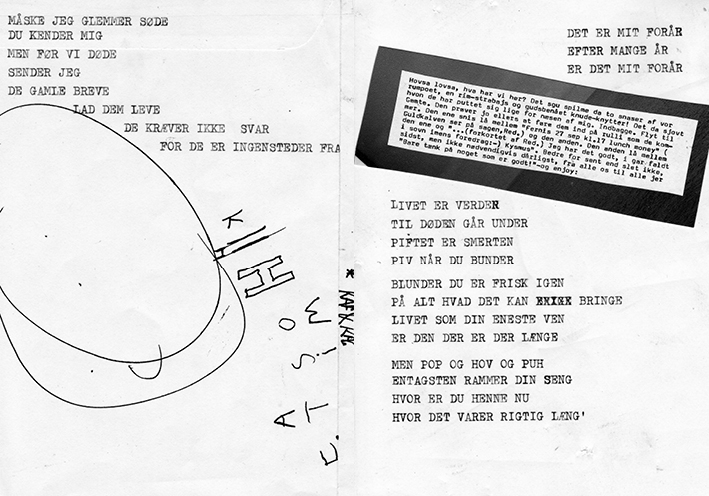 MÅSKE JEG GLEMMER SØDE
DU KENDER MIG
MEN FØR VI DØDE
SENDER JEG
DE GAMLE BREVE
LAD DEM LEVE
DE KRÆVER IKKE SVAR
FOR DE ER INGENSTEDER FRA
DET ER MIT FORÅR
EFTER MANGE ÅR
ER DET MIT FORÅR
Hovsa lovsa, hva har vi her? Det sgu spilme da to snaser af vor
rumpoet, en rim-strabajs og gudsbenået knude-knytter! Det da sjovt
hvon de har puttet sig lige for nesen af mig. Indbagge. Flyt til
Gemte. Den prøver jo ellers at fare dem ind på rulli som de kom-
mer. Den ene snis lå mellem "Fernis 27 sep kl.17 lunch money" (
Guldkalven ser på sagen,Red.) og den anden. Den anden lå mellem
den ene og "...(forkortet af Red.) Jeg har det godt, i gar faldt
i sovn imens foredrag:-) Kysmus". Bedre før sent end slet ikke,
sidst, men ikke nødvendigvis dårligst, fra alle os til alle jer
"Bare tænk på noget som er godt!"-og enjoy:
LIVET ER VERDER
TIL DØDEN GÅR UNDER
PIFTET ER SMERTEN
PIV NÅR DU BUNDER
BLUNDER DU ER FRISK IGEN
PÅ ALT HVAD DET KAN BRINGE
LIVET SOM DIN ENESTE VEN
ER DEN DER ER DER LÆNGE
MEN POP OG HOV OG PUH
ENTAGSTEN RAMMER DIN SENG
HVOR ER DU HENNE NU
HVOR DET VARER RIGTIG LÆNG'